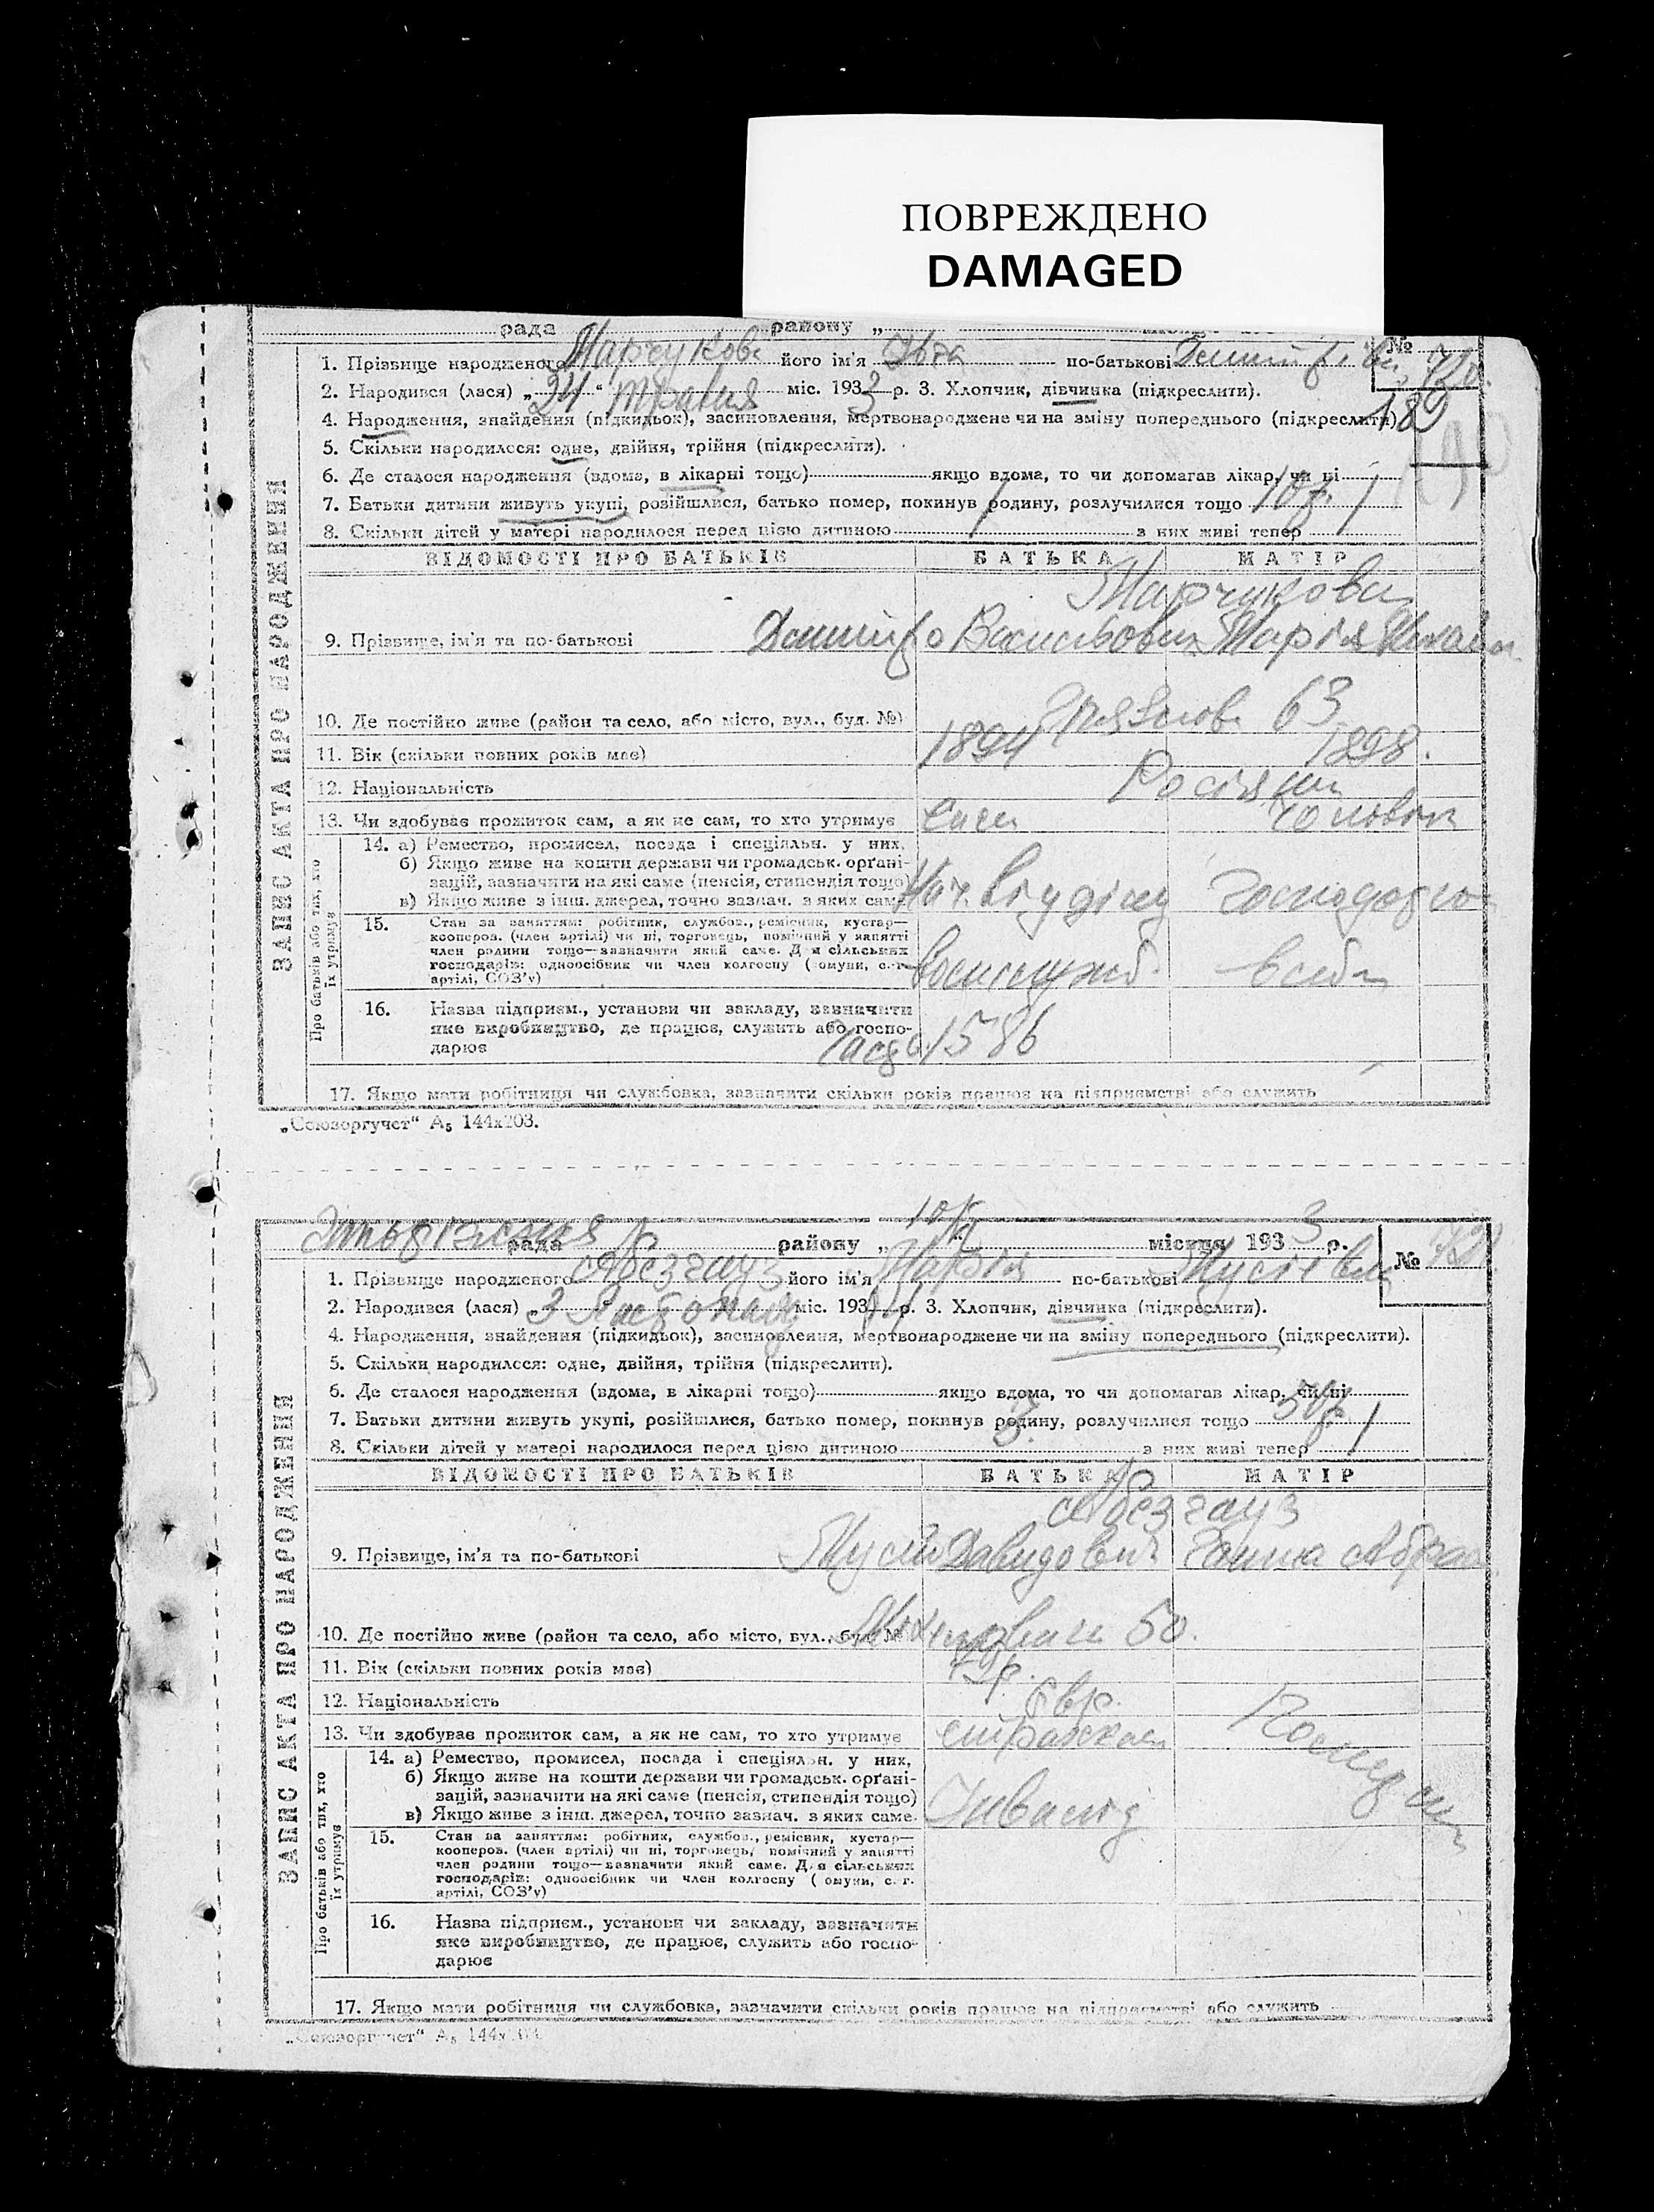 ПОВРЕЖДЕНО
DAMAGED
рада району „
№
1. Прізвище народженого його ім'я по-батькові
2. Народився (лася) „24“ Травня міс. 1933 р. 3. Хлопчик, дівчинка (підкреслити).
189
4. Народження, знайдення (підкидьок), засиновлення, мертвонароджене чи на зміну попереднього (підкреслити)
5. Скільки народилося: одне, двійня, трійня (підкреслити).
6. Де сталося народження (вдома, в лікарні тощо) якщо вдома, то чи допомагав лікар, чи ні
7. Батьки дитини живуть укупі, розійшлися, батько помер, покинув родину, розлучилися тощо
8. Скільки дітей у матері народилося перед цією дитиною 1 з них живі тепер 1
ЗАПИС АКТА ПРО НАРОДЖЕННЯ
ВІДОМОСТІ ПРО БАТЬКІВ БАТЬКА МАТІР
9. Прізвище, ім'я та по-батькові Дмитро Васильович Марія
10. Де постійно живе (район та село, або місто, вул., буд. №) 63
11. Вік (скільки повних років має) 1894 1898.
12. Національність Росіяни
13. Чи здобуває прожиток сам, а як не сам, то хто утримує сам чоловік
Про батьків або тих, хто їх утримує
14. а) Ремество, промисел, посада і спеціяльн. у них,
б) Якщо живе на кошти держави чи громадськ. орґані-
зацій, зазначити на які саме (пенсія, стипендія тощо)
в) Якщо живе з інш. джерел, точно зазнач. з яких саме
Нач. відділу
15. Стан за заняттям: робітник, службов., ремісник, кустар—
кооперов. (член артілі) чи ні, торговець, помічний у занятті
член родини тощо—зазначити який саме. Для сільських
господарів: одноосібник чи член колгоспу (комуни, с.-г.
артілі, СОЗ'у)
16. Назва підприєм., установи чи закладу, зазначити
яке виробництво, де працює, служить або госпо-
дарює
1586
17. Якщо мати робітниця чи службовка, зазначити скільки років працює на підприємстві або служить
„Союзоргучет“ А₅ 144х203.
рада району „ місяця 1933 р.
№
1. Прізвище народженого його ім'я Марія по-батькові Мусіївна
2. Народився (лася) „3 міс. 193 р. 3. Хлопчик, дівчинка (підкреслити).
4. Народження, знайдення (підкидьок), засиновлення, мертвонароджене чи на зміну попереднього (підкреслити).
5. Скільки народилося: одне, двійня, трійня (підкреслити).
6. Де сталося народження (вдома, в лікарні тощо) якщо вдома, то чи допомагав лікар, чи ні
7. Батьки дитини живуть укупі, розійшлися, батько помер, покинув родину, розлучилися тощо
8. Скільки дітей у матері народилося перед цією дитиною 3 з них живі тепер 1
ЗАПИС АКТА ПРО НАРОДЖЕННЯ
ВІДОМОСТІ ПРО БАТЬКІВ БАТЬКА МАТІР
9. Прізвище, ім'я та по-батькові Мусій Давидович Ганна
10. Де постійно живе (район та село, або місто, вул., буд. №) 50.
11. Вік (скільки повних років має)
12. Національність Євр.
13. Чи здобуває прожиток сам, а як не сам, то хто утримує страхкаса
Про батьків або тих, хто їх утримує
14. а) Ремество, промисел, посада і спеціяльн. у них,
б) Якщо живе на кошти держави чи громадськ. орґані-
зацій, зазначити на які саме (пенсія, стипендія тощо)
в) Якщо живе з інш. джерел, точно зазнач. з яких саме.
Інвалід
15. Стан за заняттям: робітник, службов., ремісник, кустар—
кооперов. (член артілі) чи ні, торговець, помічний у занятті
член родини тощо—зазначити який саме. Для сільських
господарів: одноосібник чи член колгоспу (комуни, с. г.
артілі, СОЗ'у)
16. Назва підприєм., установи чи закладу, зазначити
яке виробництво, де працює, служить або госпо-
дарює
17. Якщо мати робітниця чи службовка, зазначити скільки років працює на підприємстві або служить
„Союзоргучет“ А₅ 144х203.